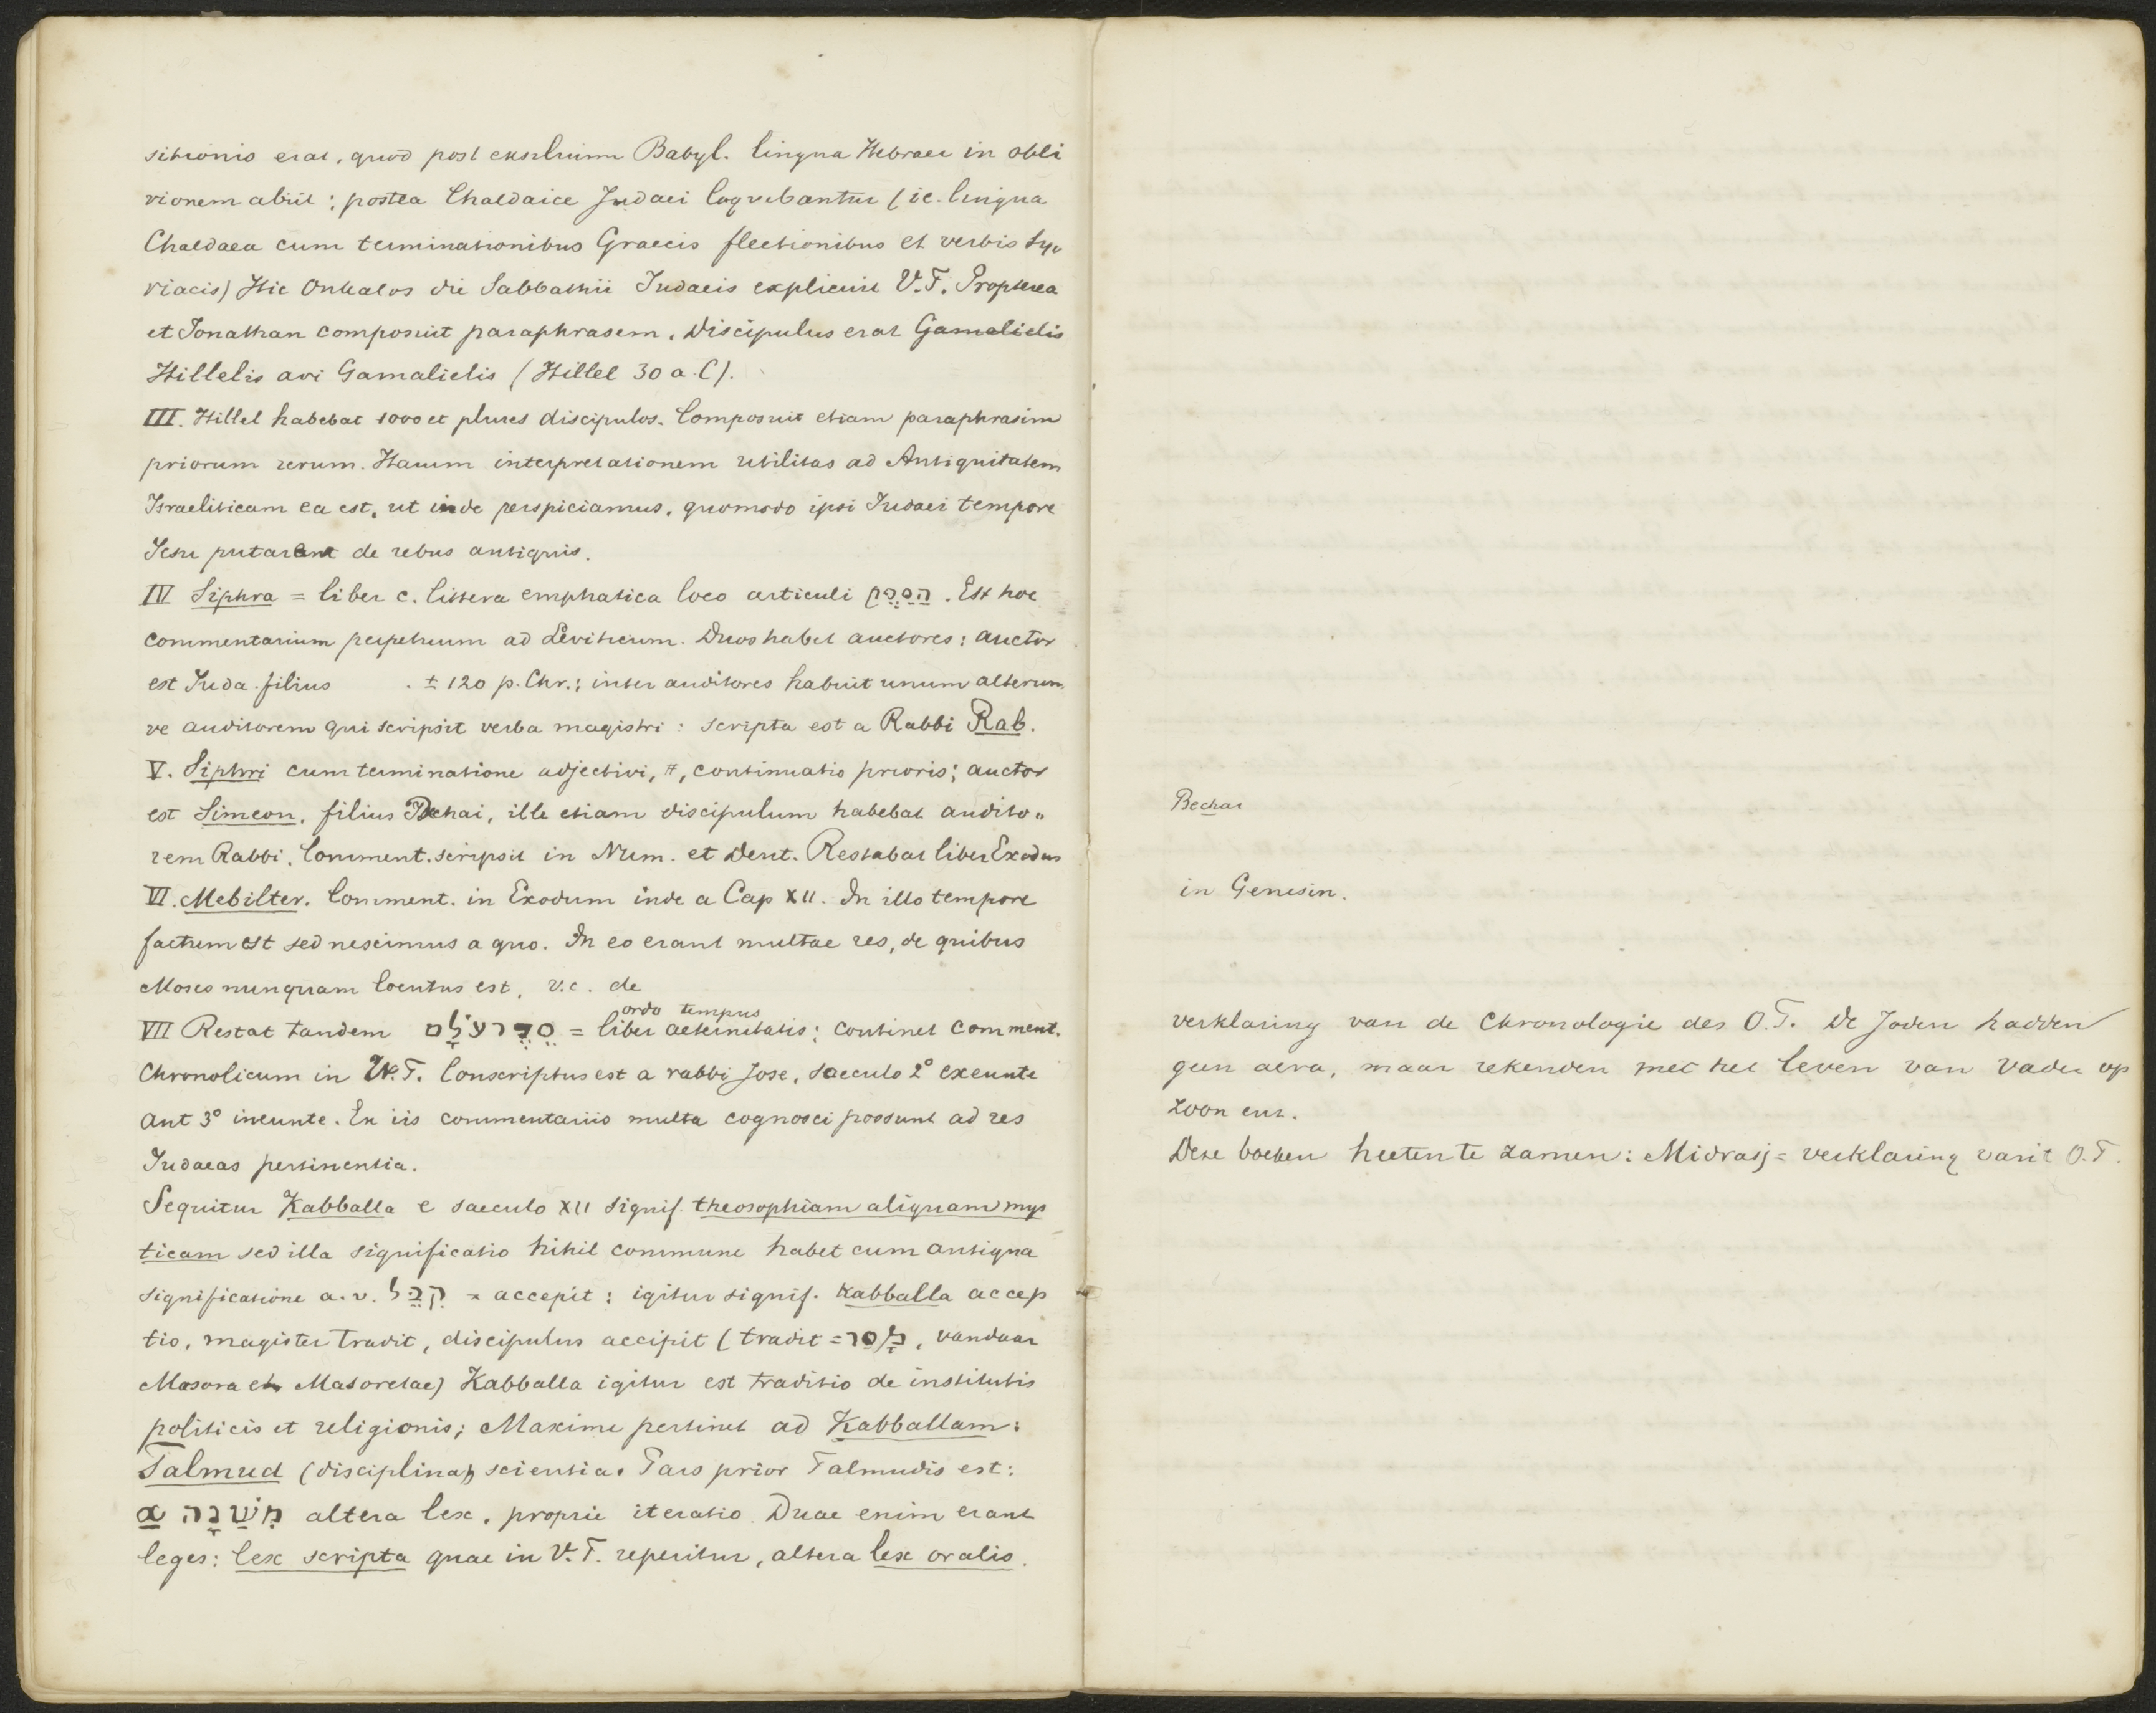 sitionis erat, quod post exsilium Babyl. lingua Hebraea in obli
vionem abiit; postea Chaldaice Judaei loquebantur (i.e. lingua
Chaldaea cum terminationibus Graecis flectionibus et verbis Sy„
riacis) Hic Onkalos die Sabbathii Judaeis explicuit V.T. Propterea
et Jonathan composuit paraphrasem. Discipulus erat Gamalielis
Hillelis avi Gamalielis (Hillel 30 a.C).
III. Hillel habebat 1000 et plures discipulos. Composuit etiam paraphrasim
priorum rerum. Harum interpretationem utilitas ad Antiquitatem
Israeliticam ea est, ut inde perspiciamus, quomodo ipsi Judaei tempore
Jesu putarent de rebus antiquis.
IV Siphra = liber c. littera emphatica loco articuli . Est hoc
commentarium perpetuum ad Leviticum. Duos habet auctores: auctor
est Juda filius . ± 120 p. Chr.; inter auditores habuit unum alterum
ve auditorem qui scripsit verba magistri: scripta est a Rabbi Rab.
V. Siphri cum terminatione adjectivi, continuatio prioris; auctor
est Simeon, filius Jochai, ille etiam discipulum habebat audito„
rem Rabbi. Comment. scripsit in Num. et Deut. Restabat liber Exodus
VI. Mebilter. Comment. in Exodum inde a Cap XII. In illo tempore
factum est sed nescimus a quo. In eo erant multae res, de quibus
Moses nunquam locutus est, v.c. de
ordo tempus
VII Restat tandem סֵדֶר עֹלָם = liber aeternitatis; continet comment.
Chronolicum in V.T. Conscriptus est a rabbi Jose, saeculo 2° exeunte
Aut 3° ineunte. Ex iis commentariis multa cognosci possunt ad res
Judaeas pertinentia.
Sequitur Kabballa e saeculo XII signif. theosophiam aliquam mys
ticam sed illa significatio nihil commune habet cum antiqua
significatione a.v. קִבֵּל = accepit; igitur signif. Kabballa accep
tio, magister tradit, discipulus accipit (tradit = מָסַר, vandaar
Masora et Masoretae) Kabballa igitur est traditio de institutis
politicis et religionis; Maxime pertinet ad Kabballam:
Talmud (disciplina) scientia. Pars prior Talmudis est:
α מִשְׁנָה altera lex, proprie iteratio. Duae enim erant
leges: lex scripta quae in V.T. reperitur, altera lex oralis.
Bechai
in Genesin.
verklaring van de Chronologie des O.T. De Joden hadden
geen aera, maar rekenden met het leven van vader op
zoon enz.
Deze boeken heeten te zamen: Midrasj = verklaring van 't O.T.